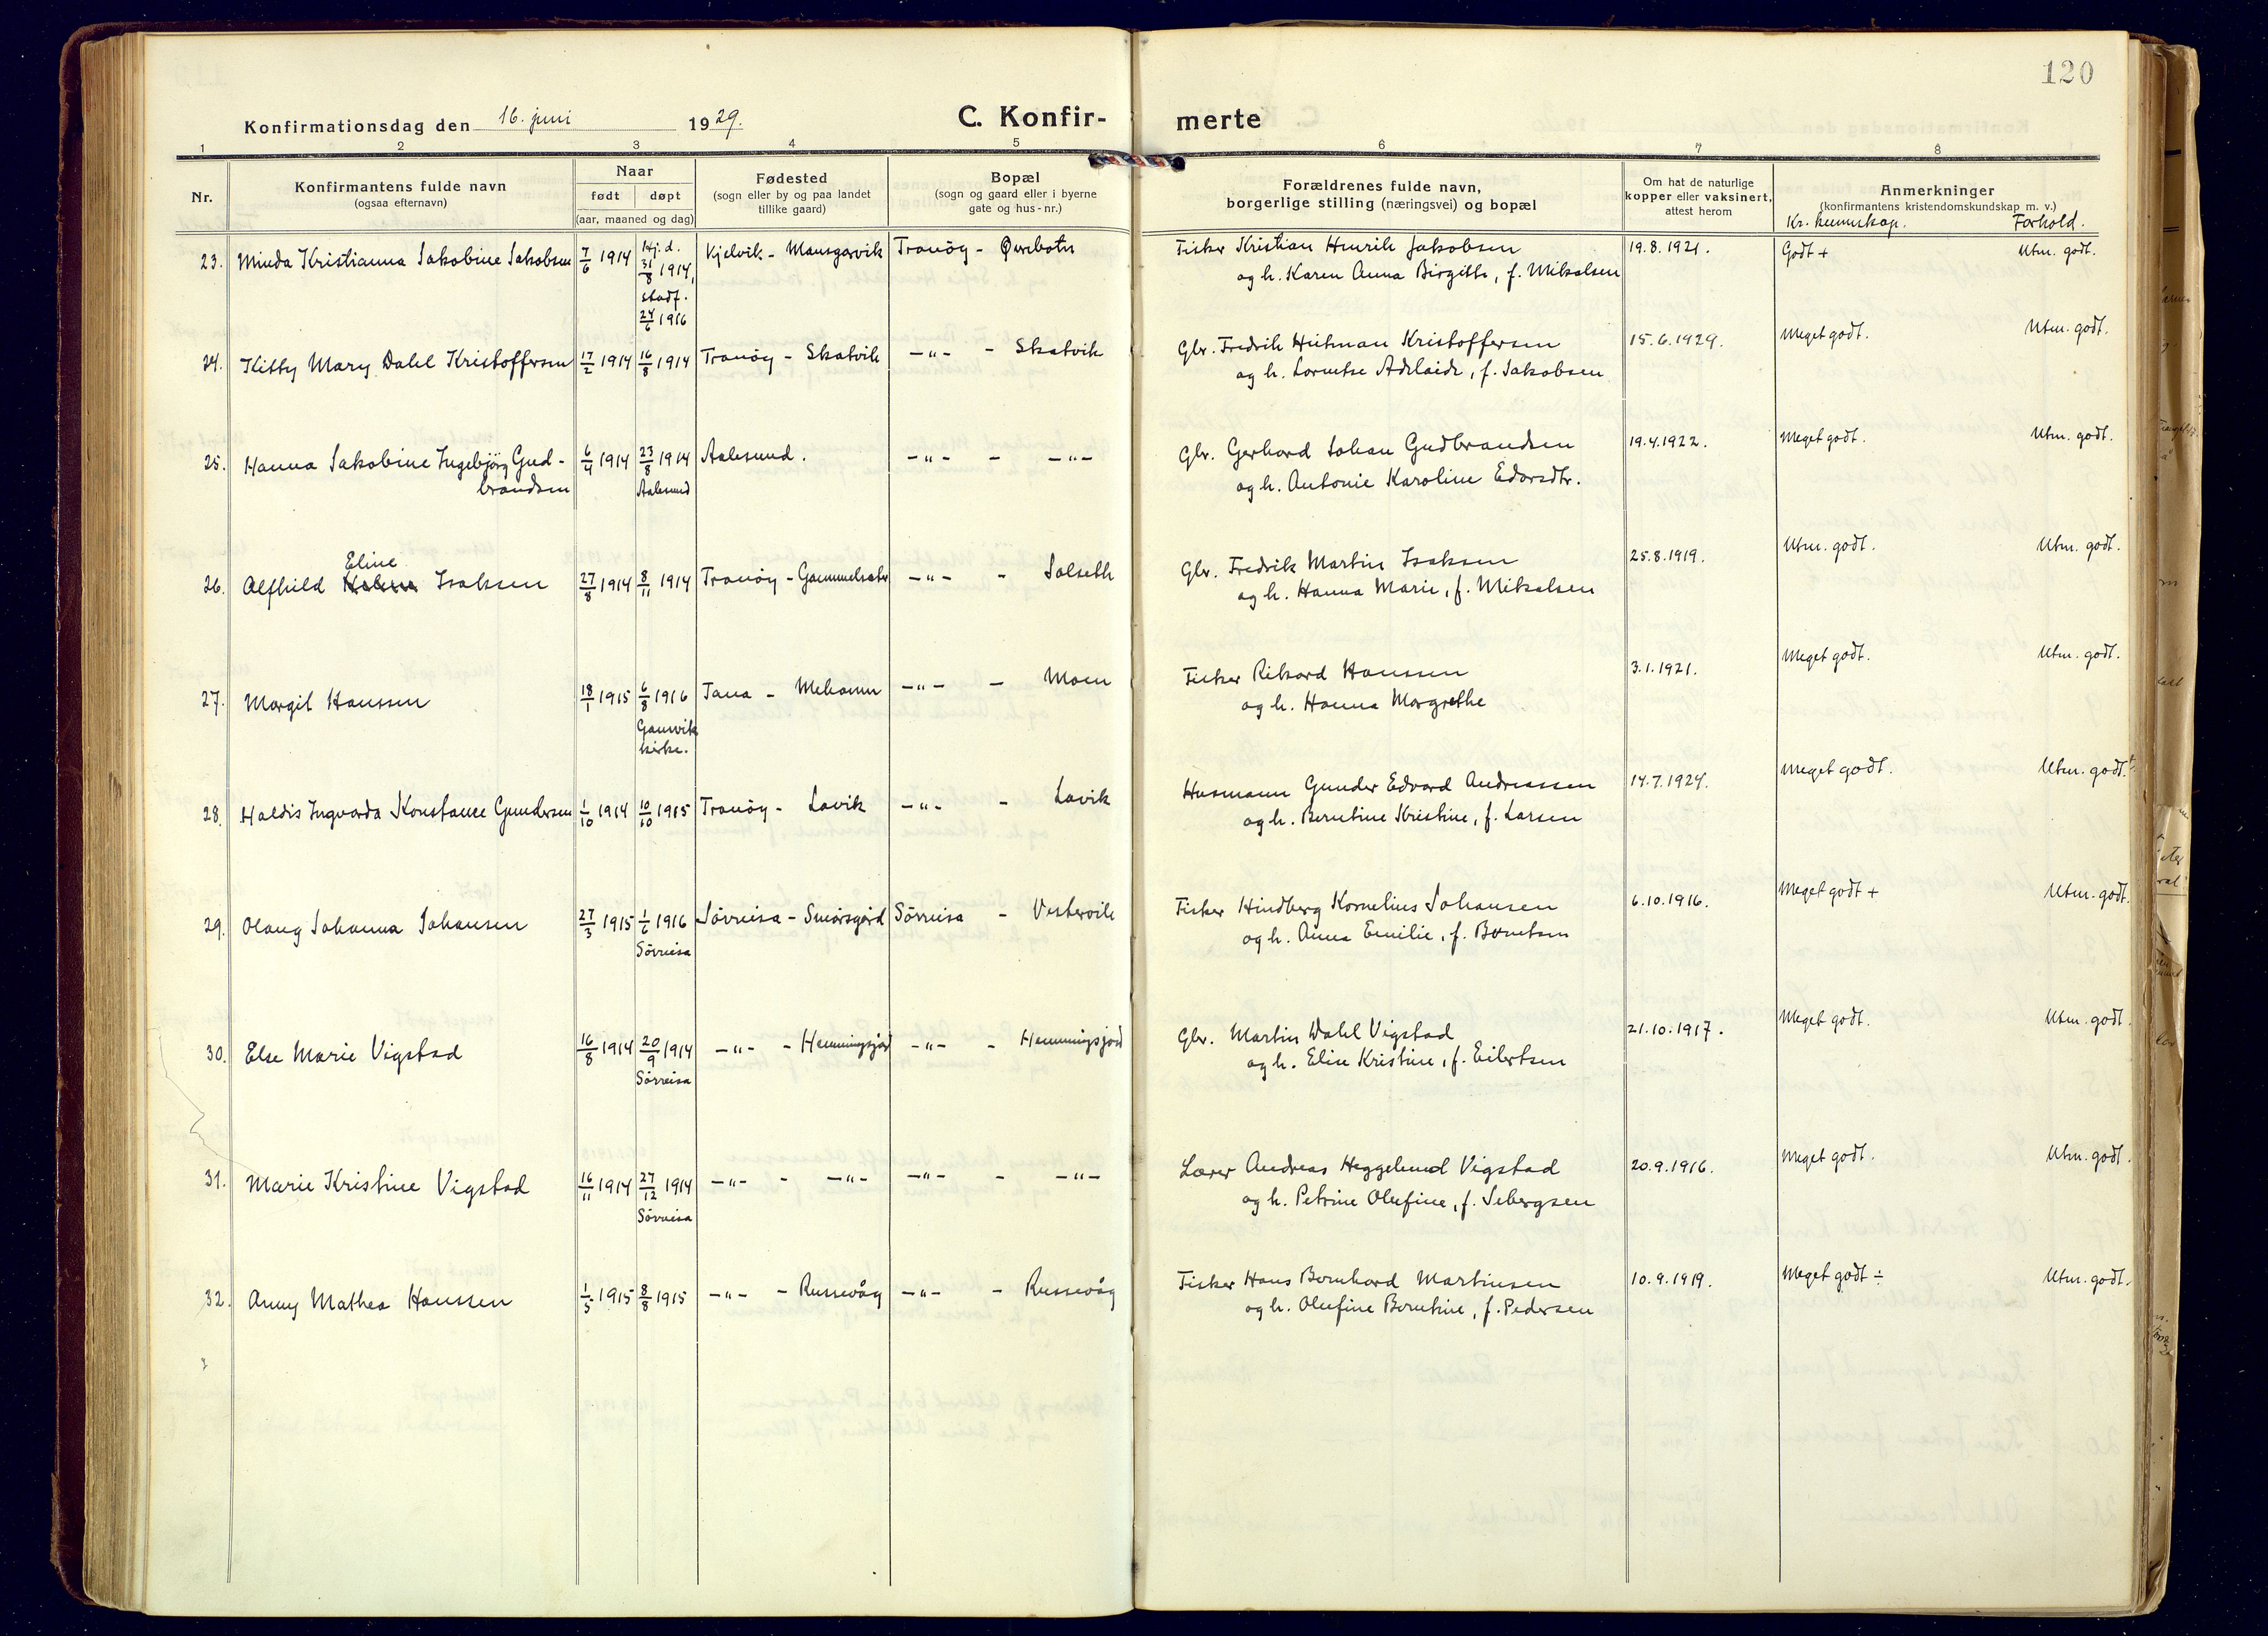 120
Konfirmationsdag den 16. juni 1929.
C. Konfirmerte
1 2 3 4 5 6 7 8
Nr.
Konfirmantens fulde navn
(ogsaa efternavn)
Naar
født døpt
(aar, maaned og dag)
Fødested
(sogn eller by og paa landet
tillike gaard)
Bopæl
(sogn og gaard eller i byerne
gate og hus-nr.)
Forældrenes fulde navn,
borgerlige stilling (næringsvei) og bopæl
Om hat de naturlige
kopper eller vaksinert,
attest herom
Anmerkninger
(konfirmantens kristendomskundskap m. v.)
Kr. kunnskap. Forhold.
23. Minda Kristianna Jakobine Jakobsen 7/6 1914 Hj. d. 31/8 1914, stadf. 24/6 1916 Kjelvik - Mansgarvik Tranöy - Øvrebotn
Fisker Kristian Henrik Jakobsen 19.8.1921. Godt + Utm. godt.
og h. Karen Anna Birgitte, f. Mikalsen
24. Kitty Mary Dahl Kristoffersen 17/2 1914 16/8 1914 Tranöy - Skatvik -"- - Skatvik
Gbr. Fredrik Hitman Kristoffersen 15.6.1929. Meget godt. Utm. godt.
og h. Lorentse Adelaide, f. Jakobsen
25. Hanna Jakobine Ingebjörg Gud-
brandsen 6/4 1914 23/8 1914 Aalesund Aalesund. -"- - -"-
Gbr. Gerhard Johan Gudbrandsen 19.4.1922. Meget godt. Utm. godt.
og h. Antonie Karoline Edvardsdtr.
26. Alfhild Eline Isaksen 27/8 1914 8/11 1914 Tranöy - Gammelsæter -"- - Solseth
Gbr. Fredrik Martin Isaksen 25.8.1919. Utm. godt. Utm. godt.
og h. Hanna Marie, f. Mikalsen
27. Margit Hanssen 18/1 1915 6/8 1916 Gamvik kirke. Tana - Mehamn -"- - Moen
Fisker Rikard Hanssen 3.1.1921. Meget godt. Utm. godt.
og h. Hanna Margrethe
28. Haldis Ingvarda Konstance Gundersen 1/10 1914 10/10 1915 Tranöy - Lavik -"- - Lavik
Husmann Gunder Edvard Andreassen 14.7.1924. Meget godt. Utm. godt.
og h. Berntine Kristine, f. Larsen
29. Olaug Johanna Johansen 27/3 1915 1/6 1916 Sörreisa Sörreisa - Smörsgård Sörreisa - Vestervik
Fisker Hindberg Kornelius Johansen 6.10.1916. Meget godt + Utm. godt.
og h. Anna Emilie, f. Berntsen
30. Else Marie Vigstad 16/8 1914 20/9 1914 Sörreisa -"- - Hemmingsjord -"- - Hemmingsjord
Gbr. Martin Dahl Vigstad 21.10.1917. Meget godt. Utm. godt.
og h. Elise Kristine, f. Eilertsen
31. Marie Kristine Vigstad 16/11 1914 27/12 1914 Sörreisa -"- - -"- -"- - -"-
Lærer Andreas Heggelund Vigstad 20.9.1916. Meget godt. Utm. godt.
og h. Petrine Olufine, f. Sebergsen
32. Anny Mathea Hanssen 1/5 1915 8/8 1915 -"- - Russevåg -"- - Russevåg
Fisker Hans Bernhard Martinsen 10.9.1919. Meget godt ÷ Utm. godt.
og h. Olufine Berntine, f. Pedersen